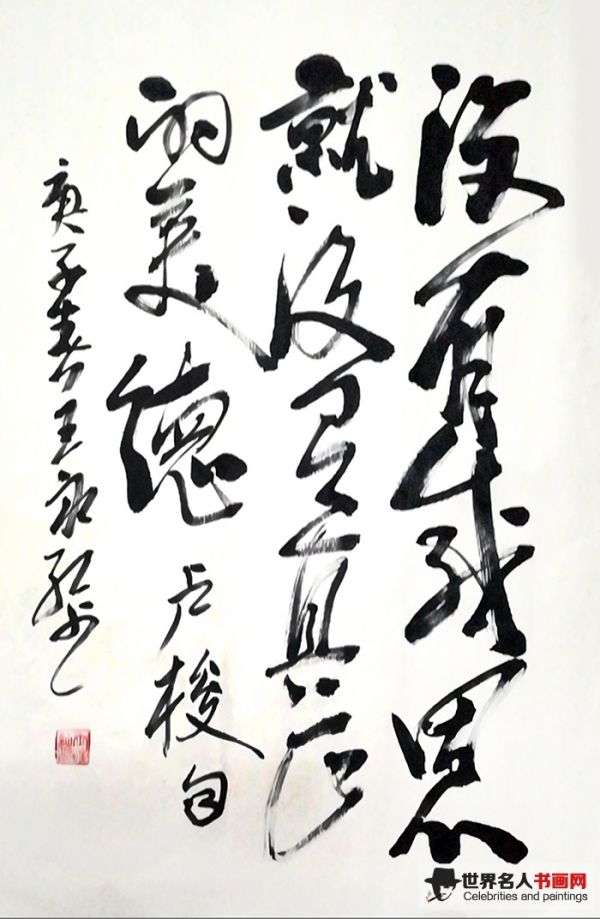 没有感恩
就没有真正
的美德 卢梭句
庚子春王永
世界名人书画网
Celebrities and paintings